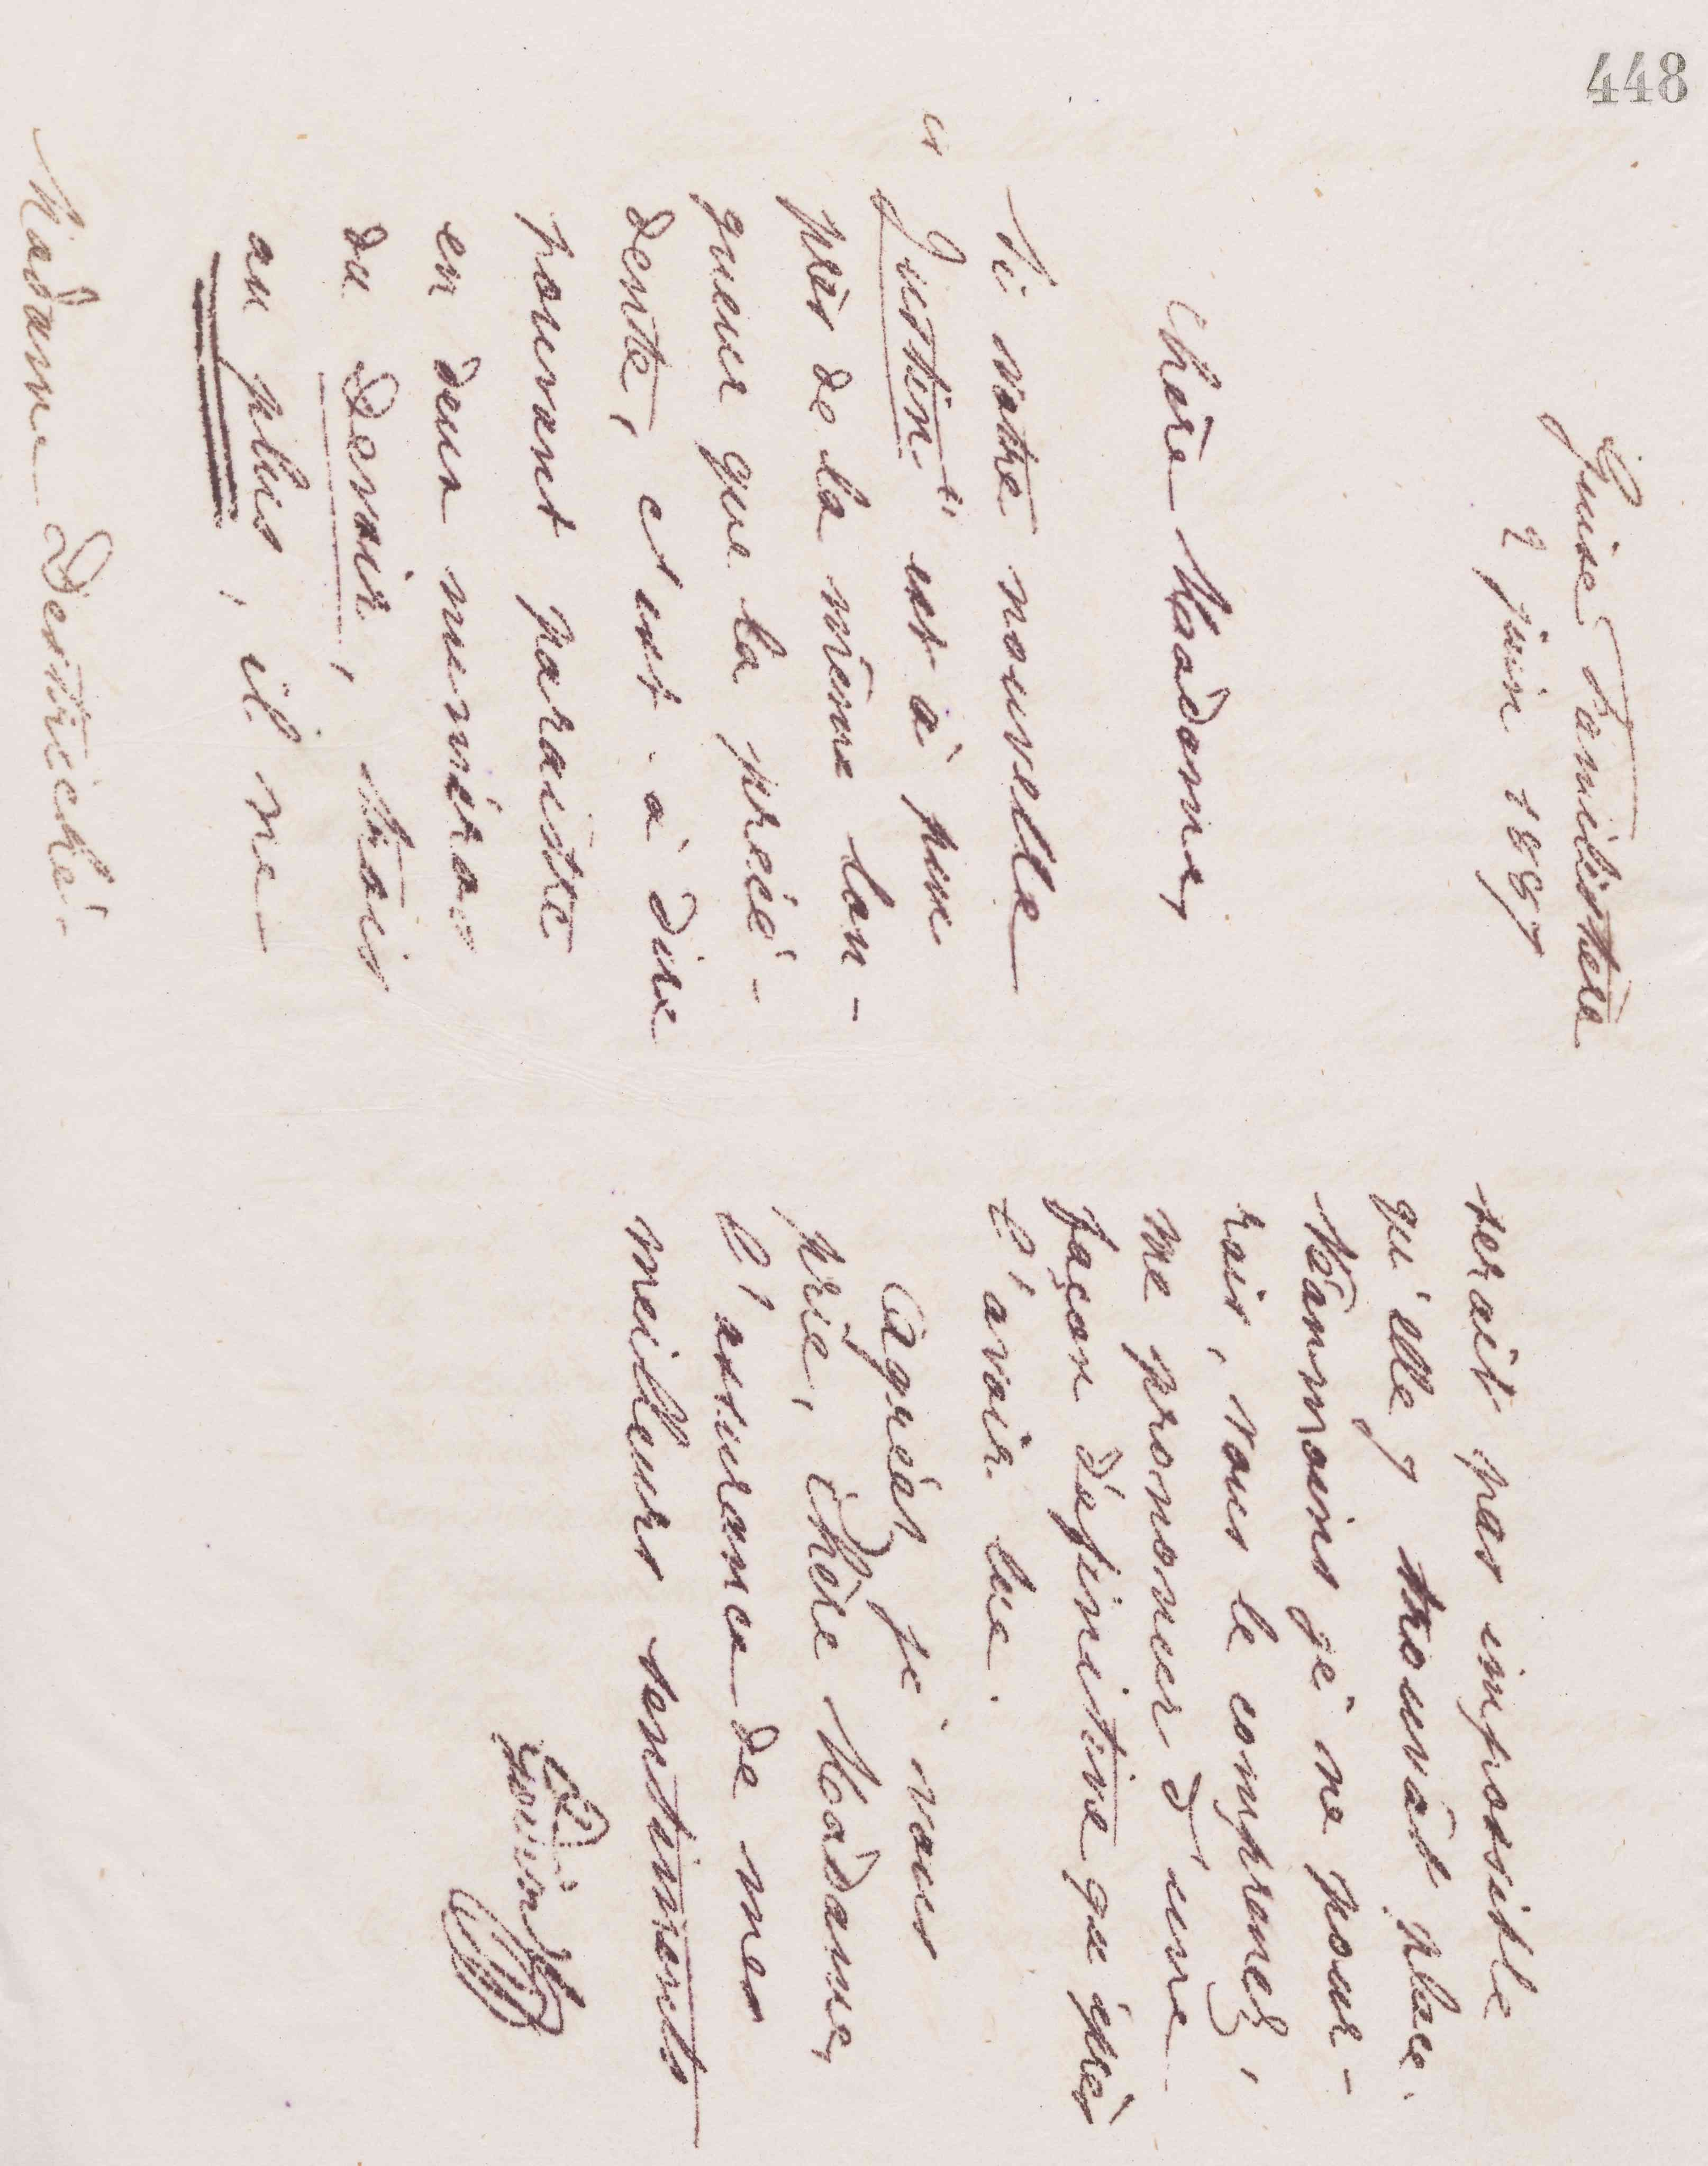 448
Guise Familistère
9 juin 1897
Chère Madame,
Si votre nouvelle
" Justine " est à peu
près de la même lon-
gueur que la précé-
dente, c'est-à-dire
pouvant paraître
en deux numéros
du Devoir, trois
au plus, il ne
Madame Destriché.
serait pas impossible
qu'elle y trouvât place.
Néanmoins je ne pour-
rais, vous le comprenez,
me prononcer d'une
façon définitive qu'après
l'avoir lue.
Agréez, je vous
prie, chère Madame,
l'assurance de mes
meilleurs sentiments